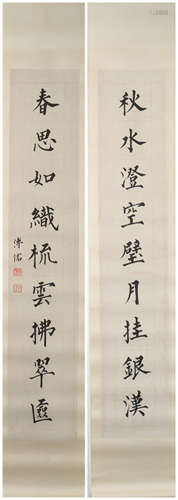 秋水澄空璧月挂銀漢
春思如織梳雲拂翠匳
溥佑